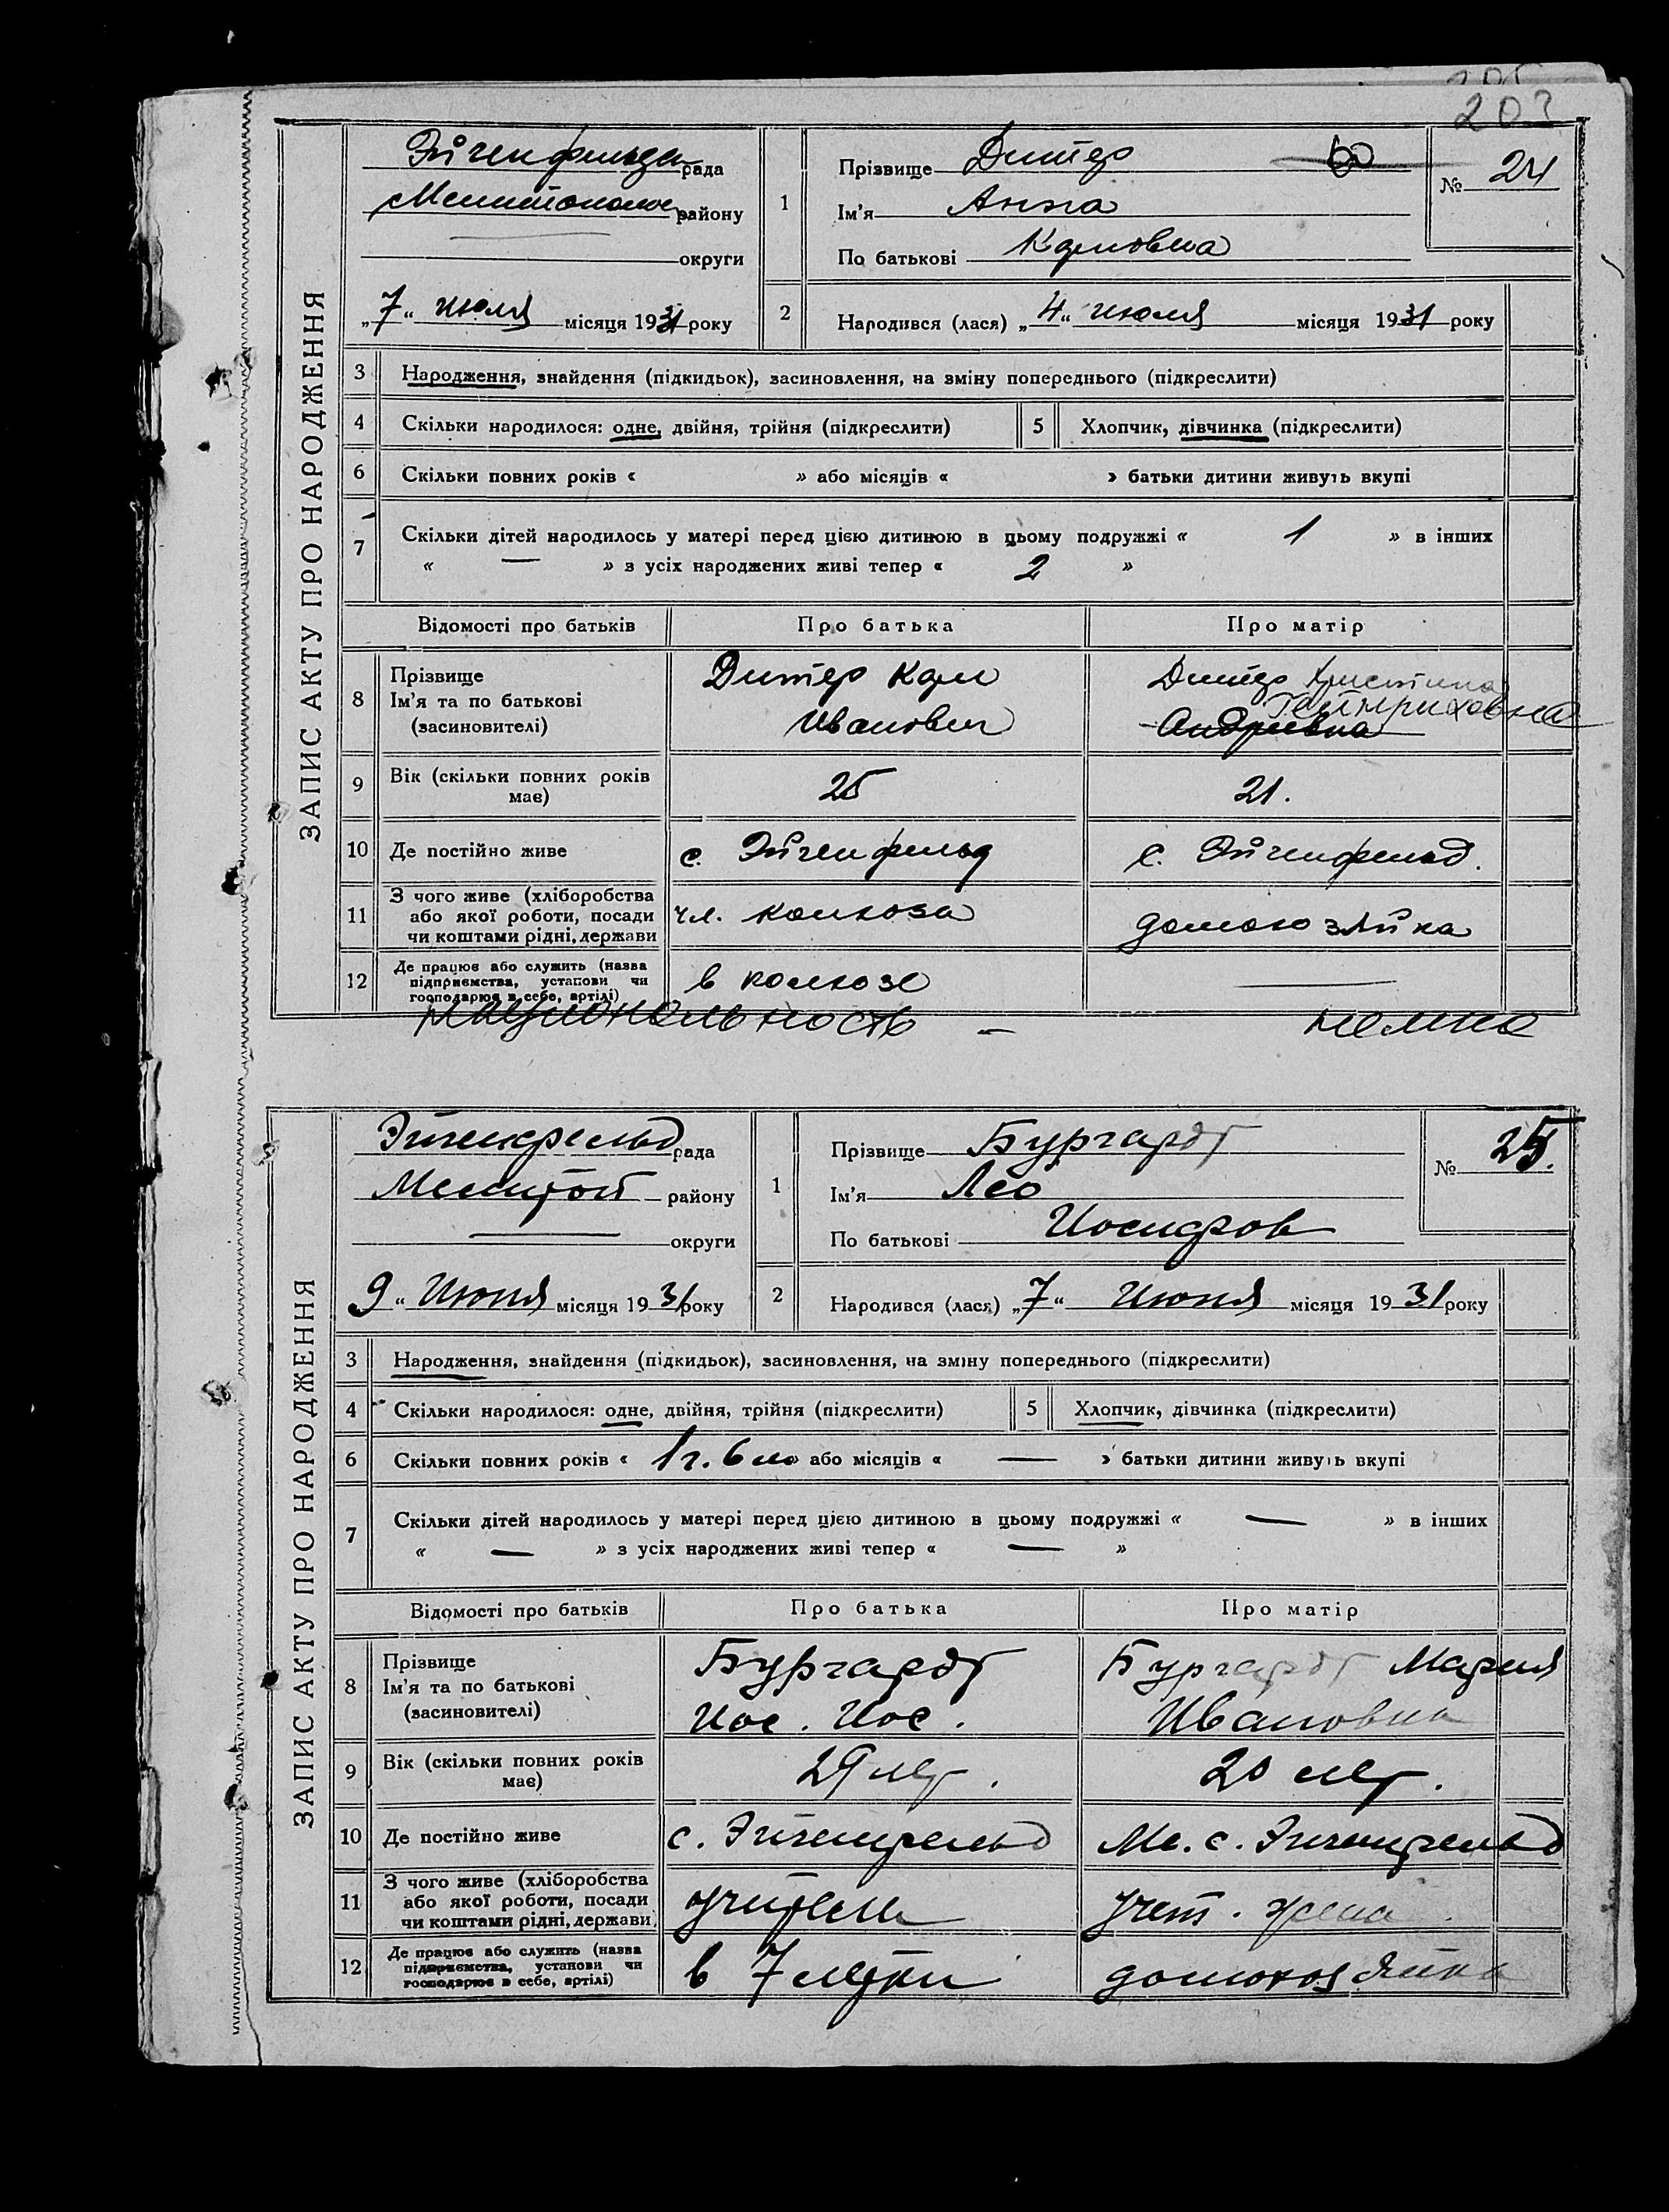 203
ЗАПИС АКТУ ПРО НАРОДЖЕННЯ
Эйгенфельда рада
району
округи
„7“ июля місяця 1931 року
1
Прізвище Дитер
60
Ім'я Анна
По батькові Карловна
№ 24
2
Народився (лася) „4“ июля місяця 1931 року
3 Народження, знайдення (підкидьок), засиновлення, на зміну попереднього (підкреслити)
4 Скільки народилося: одне, двійня, трійня (підкреслити)
5 Хлопчик, дівчинка (підкреслити)
6 Скільки повних років « » або місяців « » батьки дитини живуть вкупі
7 Скільки дітей народилось у матері перед цією дитиною в цьому подружжі « 1 » в інших
« — » з усіх народжених живі тепер « 2 »
Відомості про батьків Про батька Про матір
8 Прізвище
Ім'я та по батькові
(засиновителі)
Дитер Карл
Иванович
Дитер Христина
Гейнриховна
Андреевна
9 Вік (скільки повних років
має)
25
21.
10 Де постійно живе
с. Эйгенфельд
с. Эйгенфельд.
11 З чого живе (хліборобства
або якої роботи, посади
чи коштами рідні, держави
чл. колхоза
домохозяйка
12 Де працює або служить (назва
підприємства, установи чи
господарює в себе, артілі)
в колхозе
—
национальность — немка
ЗАПИС АКТУ ПРО НАРОДЖЕННЯ
Эйгенфельд рада
Мелитоп району
округи
9 “ Июня місяця 1931 року
1
Прізвище Бургардт
Ім'я Лео
По батькові Иосифов
№ 25.
2
Народився (лася) „7“ Июня місяця 1931 року
3 Народження, знайдення (підкидьок), засиновлення, на зміну попереднього (підкреслити)
4 Скільки народилося: одне, двійня, трійня (підкреслити)
5 Хлопчик, дівчинка (підкреслити)
6 Скільки повних років « 1 г. 6 м » або місяців « — » батьки дитини живуть вкупі
7 Скільки дітей народилось у матері перед цією дитиною в цьому подружжі « — » в інших
« — » з усіх народжених живі тепер « — »
Відомості про батьків Про батька Про матір
8 Прізвище
Ім'я та по батькові
(засиновителі)
Бургардт
Иос. Иос.
Бургардт Мария
Ивановна
9 Вік (скільки повних років
має)
29 лет.
20 лет.
10 Де постійно живе
с. Эйгенфельд
с. Эйгенфельд
11 З чого живе (хліборобства
або якої роботи, посади
чи коштами рідні, держави
учитель
жена
12 Де працює або служить (назва
підприємства, установи чи
господарює в себе, артілі)
в 7 летки
домохозяйка